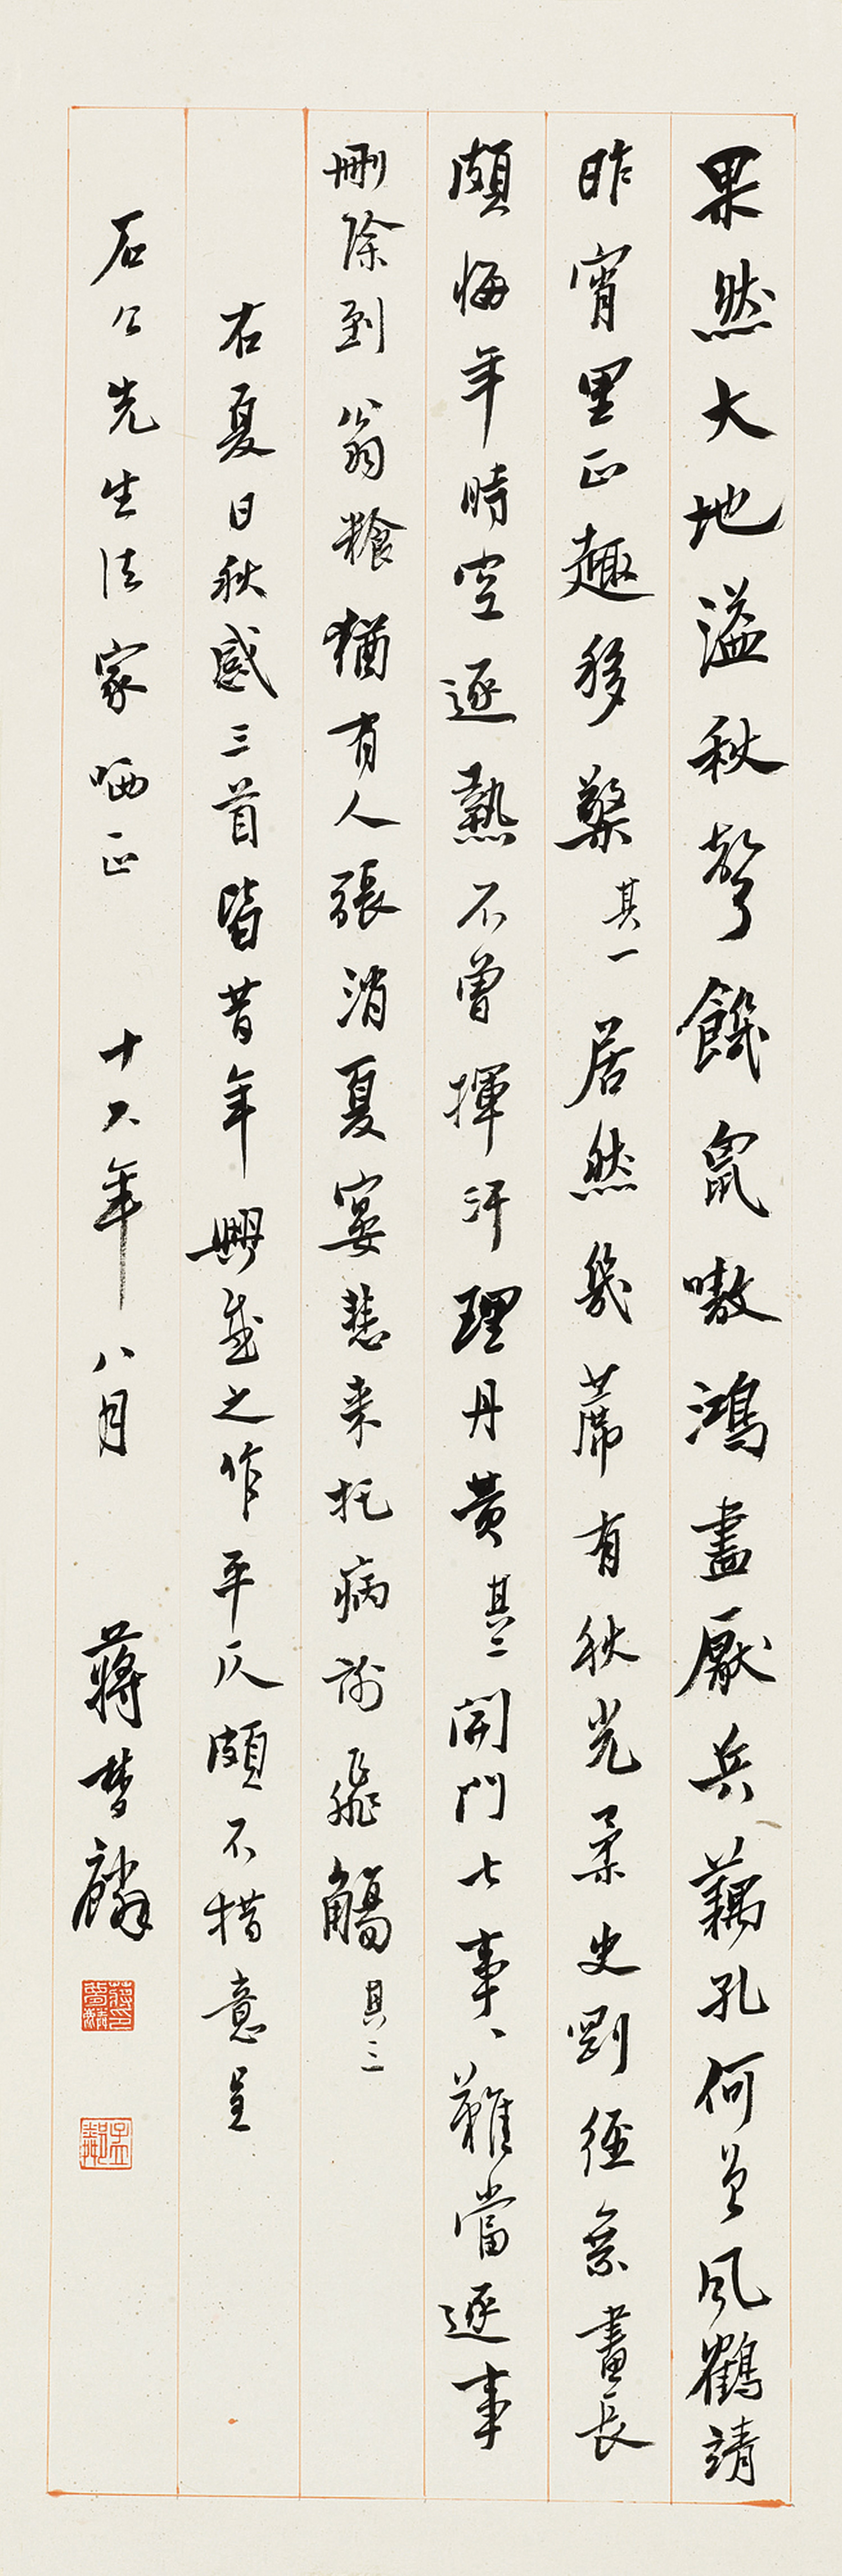 果然大地溢秋聲饑鼠嗷鴻盡厭兵藕孔何曾風鶴靖
昨宵里正趣移檠其一居然幾蓆有秋光柔史剛經氽晝長
頗悔年時空逐熱不曾揮汗理丹黃其二開門七事、難當逐事
刪除到翁飧猶有人張消夏宴慧来托病謝飛觴其三
右夏日秋感三首皆昔年興感之作平仄頗不措意呈
石公先生法家哂正 十六年八月 蔣夢麟